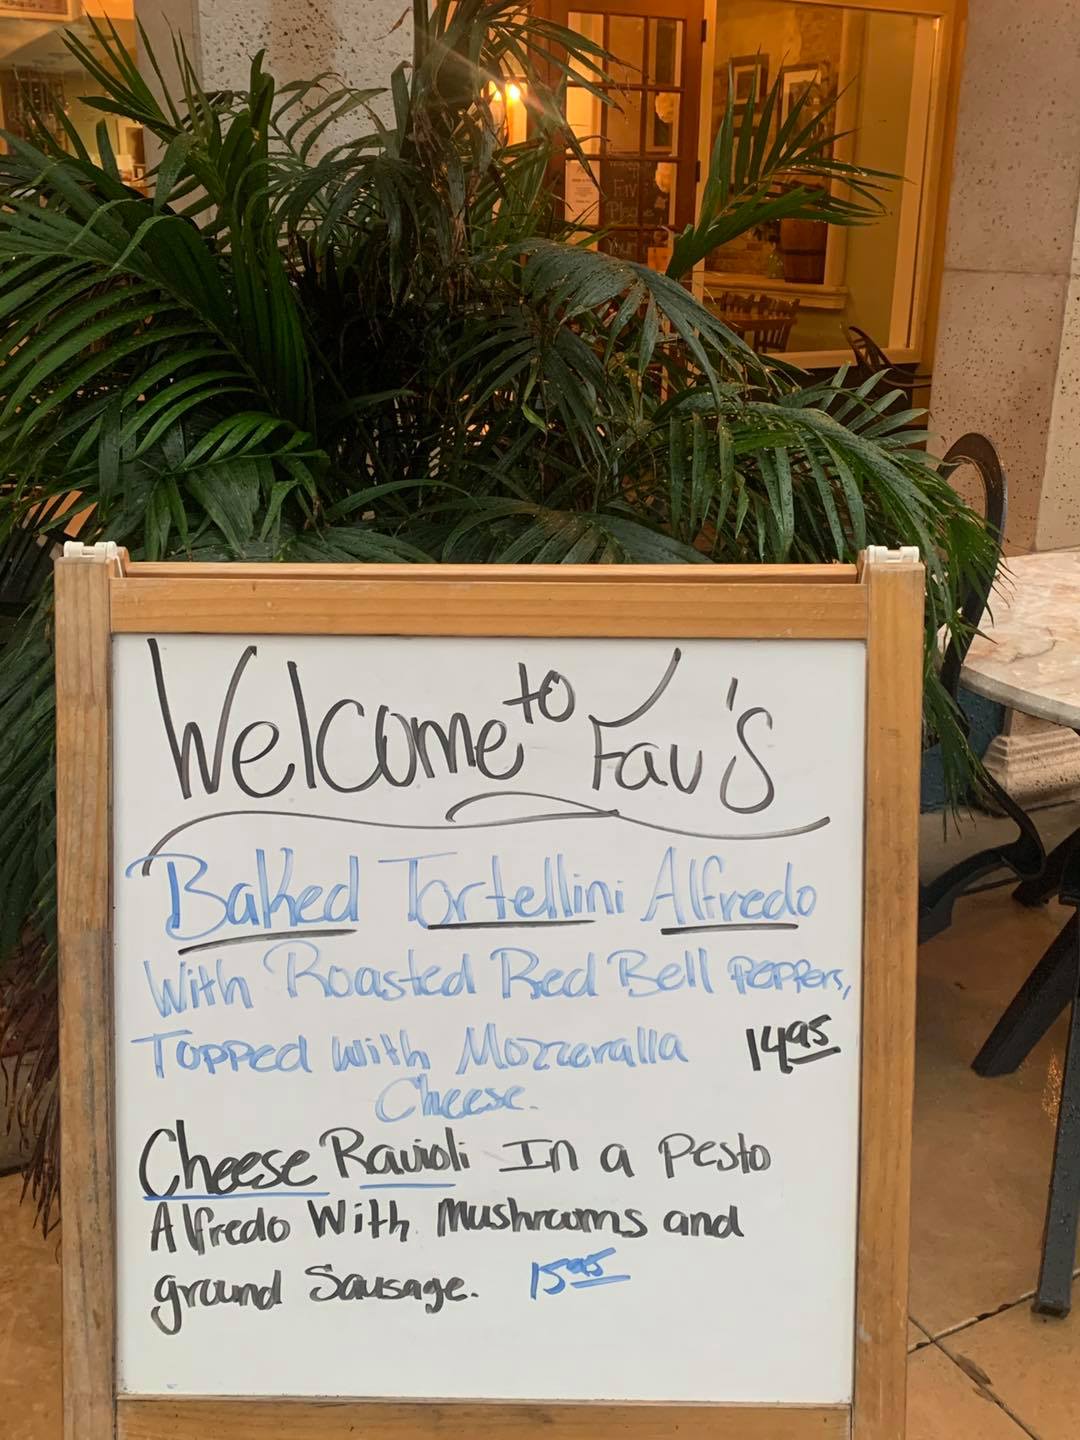 Welcome to Fav's
Baked Tortellini Alfredo
With Roasted Red Bell Peppers,
Topped With Mozzeralla 14.95
Cheese.
Cheese Ravioli In a Pesto
Alfredo With Mushrooms and
ground Sausage. 15.95